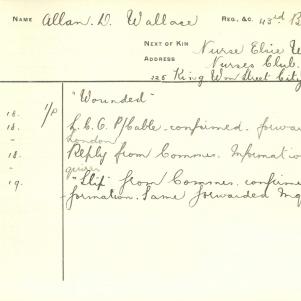 NAME Allan. D. Wallace REG., &C. 43rd B
NEXT OF KIN Nurse Elsie W
ADDRESS Nurses Club.
125 King Wm Street City
"Wounded"
16. 1/P
18. L.C.C. P/Cable. confirmed. forwar
London
18. Reply from Commes. Informatio
given
19. "Slip" from Commes. confirme
formation. Same forwarded Inq